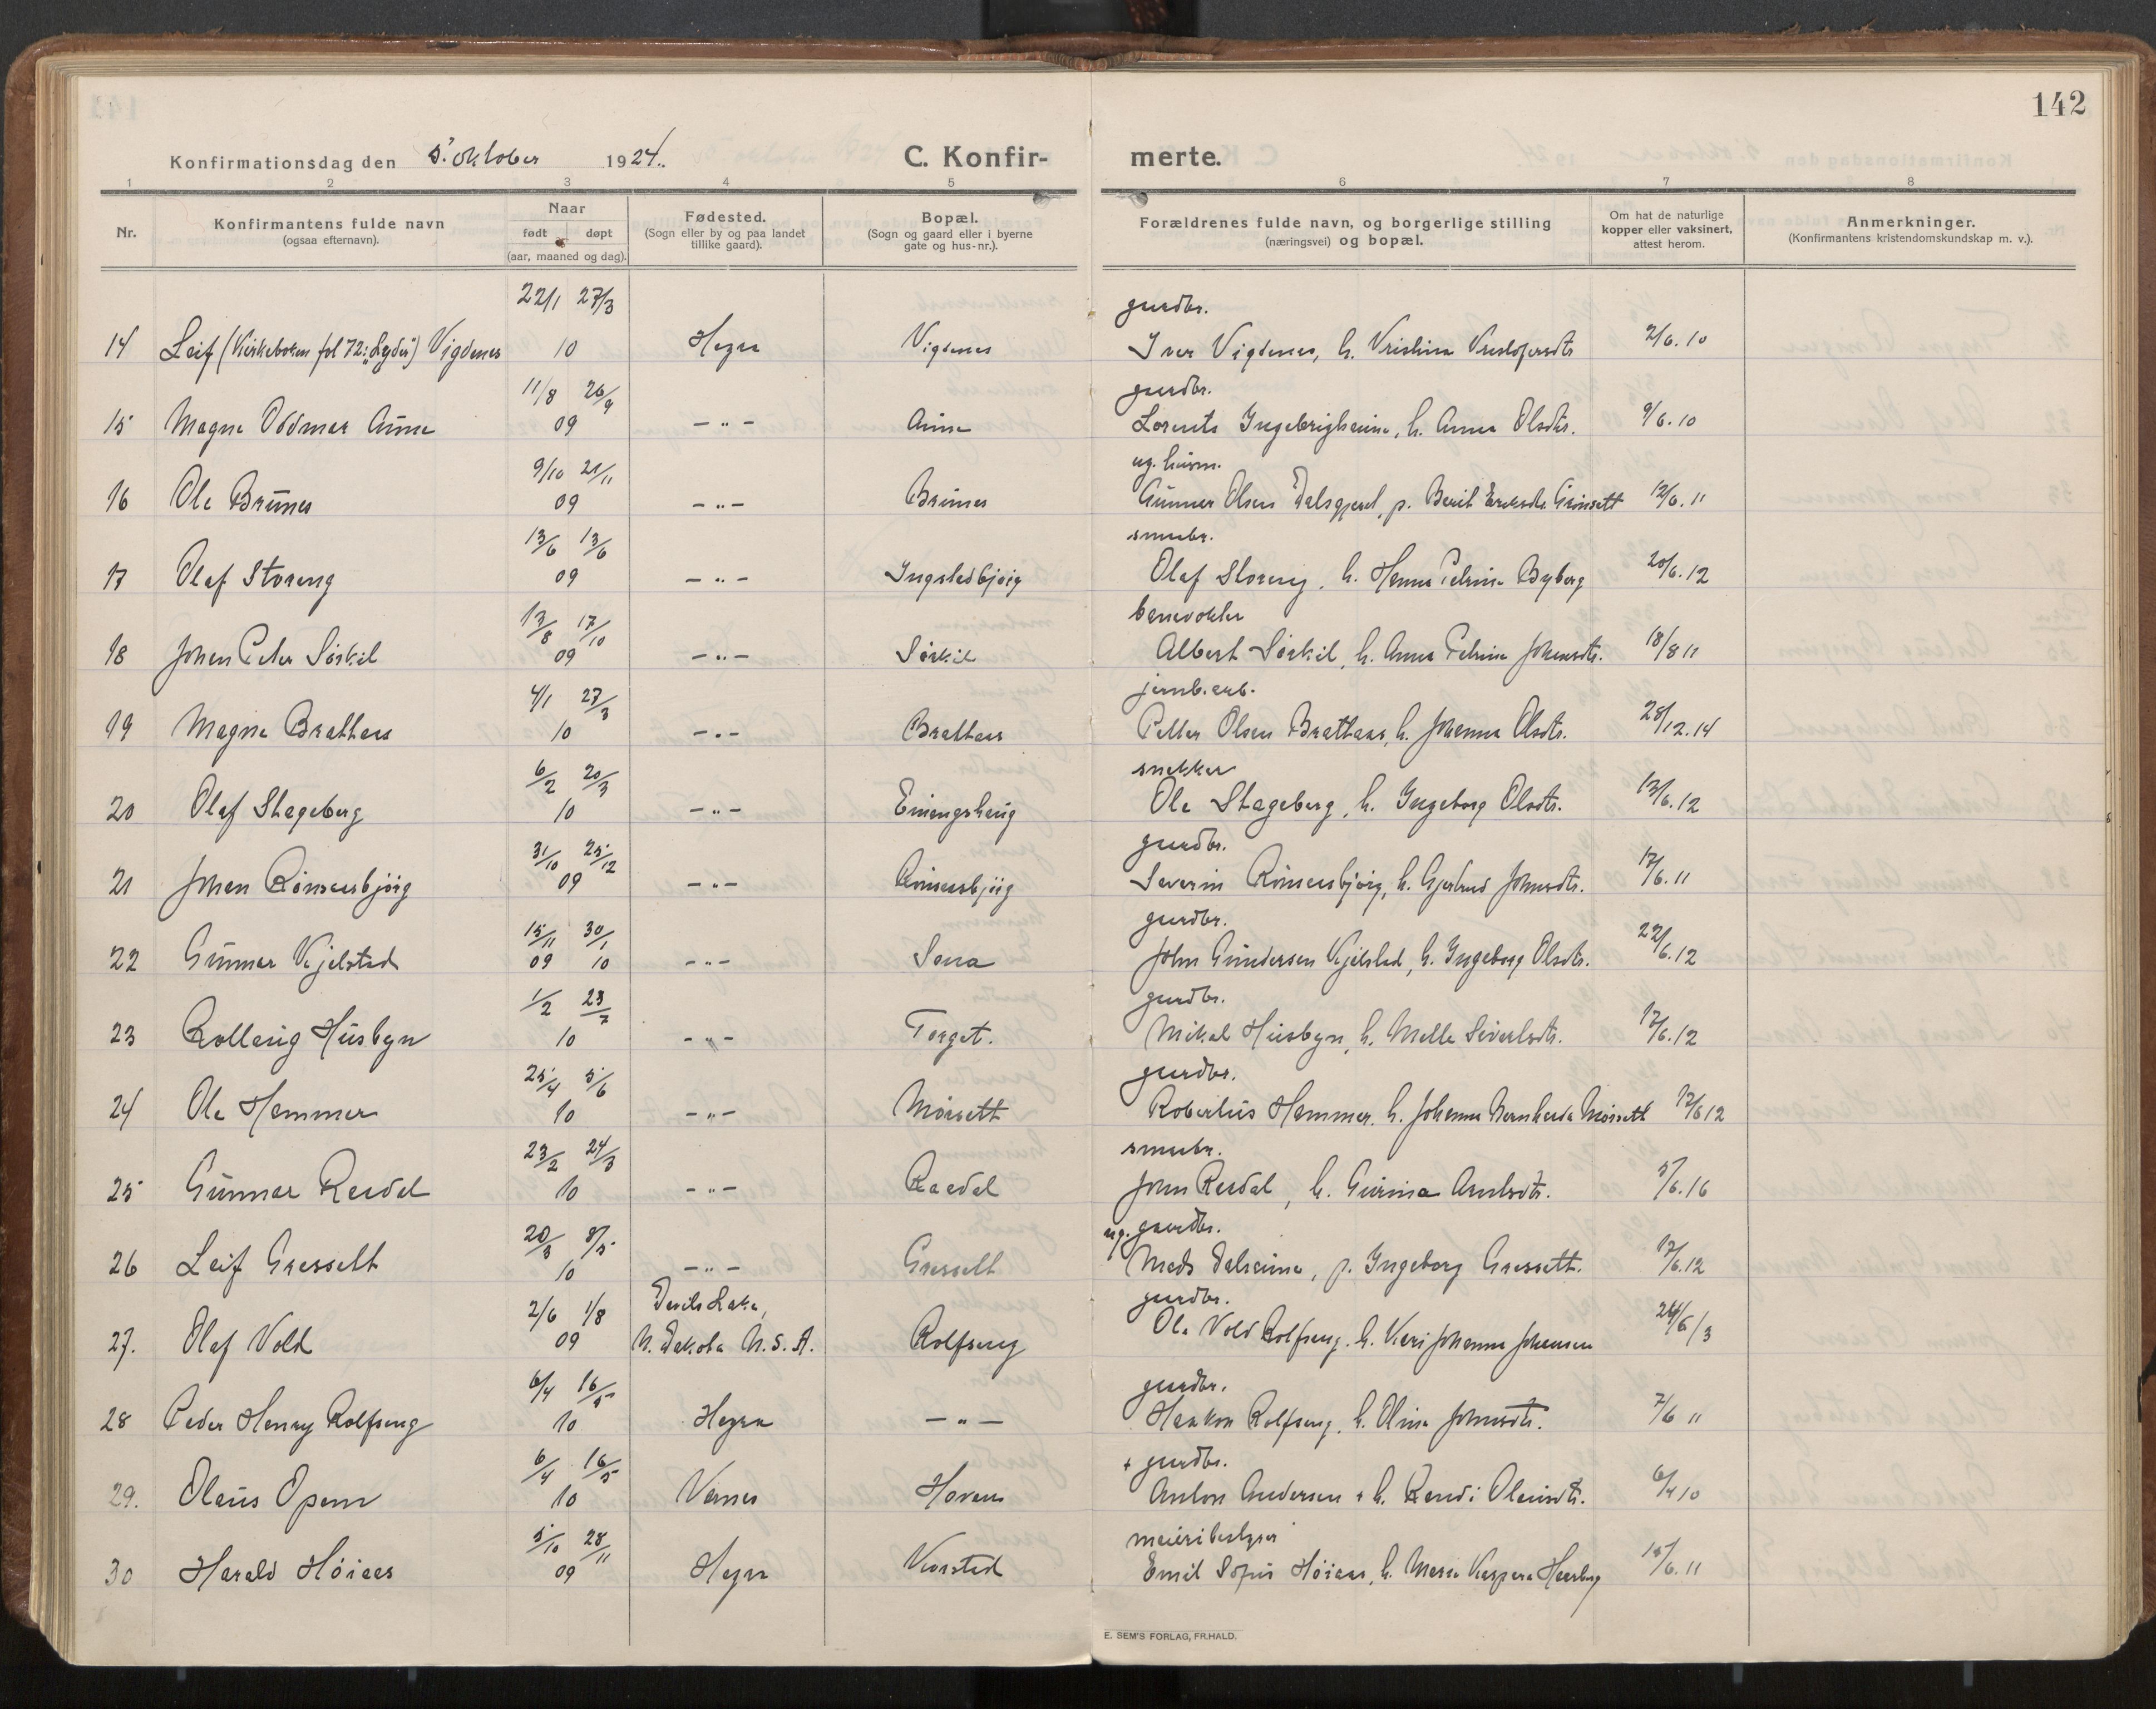 142
Konfirmationsdag den 5' oktober 1924. C. Konfirmerte.
1 2 3 4 5 6 7 8
Nr. Konfirmantens fulde navn (ogsaa efternavn). Naar født døpt (aar, maaned og dag). Fødested. (Sogn eller by og paa landet tillike gaard). Bopæl. (Sogn og gaard eller i byerne gate og hus-nr.). Forældrenes fulde navn, og borgerlige stilling (næringsvei) og bopæl. Om hat de naturlige kopper eller vaksinert, attest herom. Anmerkninger. (Konfirmantens kristendomskundskap m. v.).
22/1 27/3 gardbr.
14 Leif (Kirkeboken fol 72: "Lyder") Vigdenes 10 Hegra Vigdenes Iver Vigdenes, h. Kristina Kristofersdtr 2/6.10
11/8 26/9 gardbr.
15 Magne Oddmar Aune 09 - " - Aune Lorents Ingebrigtsaune, h. Anna Olsdtr. 9/6.10
9/10 21/11 ug. husm.
16 Ole Brunes 09 - " - Brunes Gunnar Olsen Dalsgjerd, p. Berit Eriksdtr. Grønsett 12/6.11
13/6 13/6 smabr.
17 Olaf Storeng 09 - " - Ingstadbjørg Olaf Storeng, h. Hanna Petrine Byborg 20/6.12
13/8 17/10 banevokter
18 Johan Peter Sørkil 09 - " - Sørkil Albert Sørkil, h. Anna Petrine Johansdtr. 18/8 11
4/1 27/3 jernb.arb.
19 Magne Brathaas 10 - " - Brathaas Petter Olsen Brathaas, h. Johanna Olsdtr. 28/12.14
6/2 20/3 snekker
20 Olaf Stageberg 10 - " - Einangshaug Ole Stageberg, h. Ingeborg Olsdtr. 13/6.12
31/10 25/12 gardbr.
21 Johan Rimsaasbjørg 09 - " - Rimsaasbjørg Severin Rimsaasbjørg, h. Gjertrud Johnsdtr. 17/6.11
15/11 30/1 gardbr.
22 Gunnar Kjelstad 09 10 - " - Sona John Gundersen Kjelstad, h. Ingeborg Olsdtr. 22/6.12
1/2 23/7 gardbr.
23 Rollaug Husbyn 10 - " - Torget. Mikal Husbyn, h. Melle Sivertsdtr. 12/6.12
25/4 5/6 gardbr.
24 Ole Hammer 10 - " - Mørsett Robertus Hammer, h. Johanna Bernharda Mørsett 12/6 12
23/2 24/3 smabr.
25 Gunnar Raadal 10 - " - Raadal John Raadal, h. Gurina Arntsdtr. 5/6.16
20/3 8/5 ug. gardbr.
26 Leif Gresselt 10 - " - Gresselt Mads Dalsaune, p. Ingeborg Gressett. 12/6.12
2/6 1/8 Devils Lake, gardbr.
27. Olaf Vold 09 N. Dakota U.S.A. Rolfseng Ole Vold Rolfseng, h. Kari Johanna Johansen 24/6 13
6/4 16/5 gardbr.
28 Peder Henry Rolfseng 10 Hegra - " - Haakon Rolfseng, h. Olina Johnsdtr. 7/6 11
6/4 16/5 + gardbr.
29. Olaus Opem 10 Værnes Haraas Anton Andersen + h. Randi Olausdtr. 6/4 10
5/10 28/11 meieribestyrer
30 Harald Høiaas 09 Hegra Kvorstad Emil Sofus Høiaas, h. Maren Kaspara Haarberg 15/6.11
E. SEM'S FORLAG, FR.HALD.